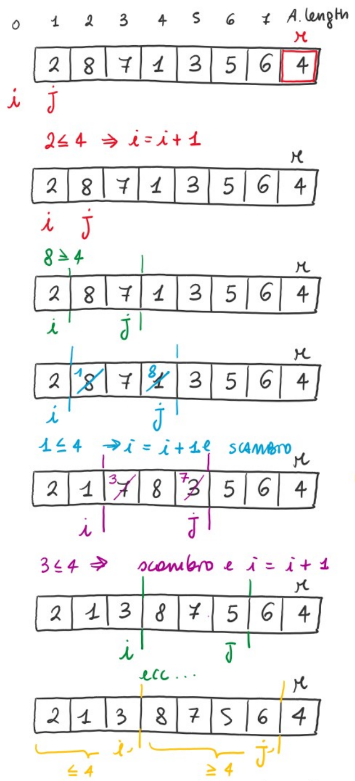 0 1 2 3 4 5 6 7 A.length
r
2 8 7 1 3 5 6 4
i j
2≤4 ⇒ i=i+1
r
2 8 7 1 3 5 6 4
i j
8≥4
r
2 8 7 1 3 5 6 4
i j
r
1 8
2 8 7 1 3 5 6 4
i j
1≤4 ⇒ i=i+1 e scambio
r
3 7
2 1 7 8 3 5 6 4
i j
3≤4 ⇒ scambio e i=i+1
r
2 1 3 8 7 5 6 4
i j
ecc...
r
2 1 3 8 7 5 6 4
i j
≤4 ≥4